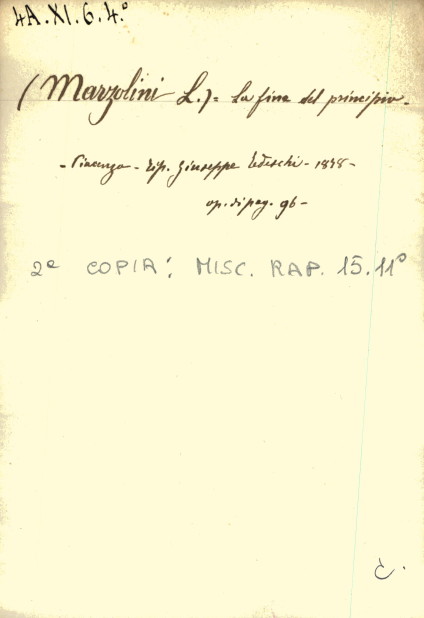 4A.XI.6.4.º
(Marzolini L.) = La fine del principio -
- Piacenza - Tip. Giuseppe Tedeschi - 1878 -
op. di pag. 96 -
2ª COPIA: MISC. RAP. 15.11º
C.